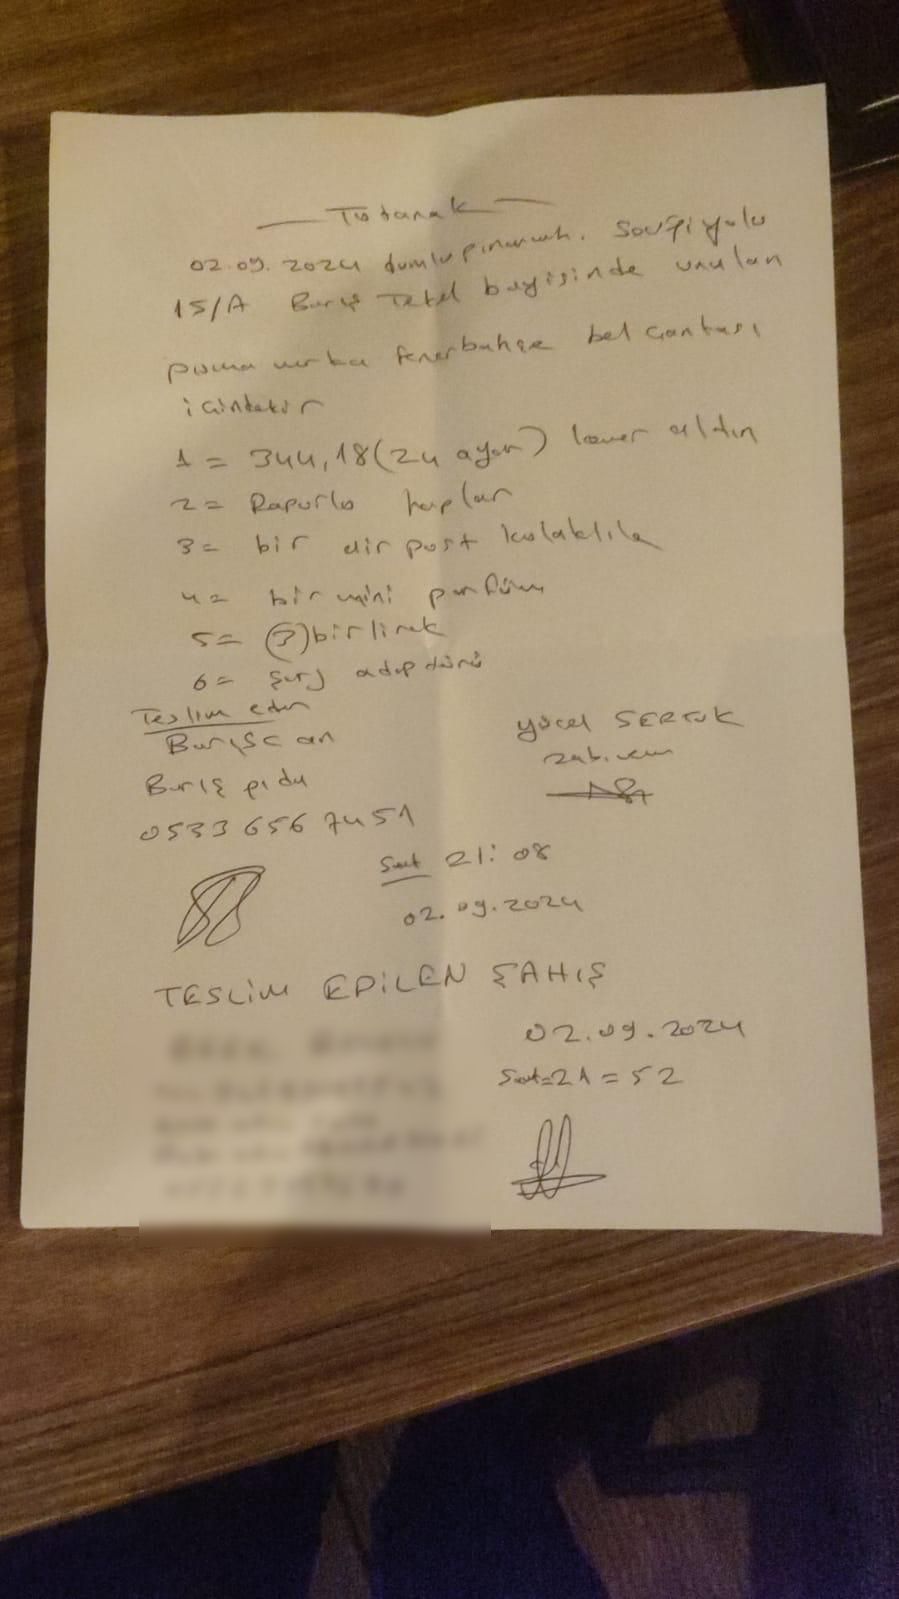 Tutanak
02.09.2024 dumlupınar mah. Savğiyolu
15/A Barış Tekel bayisinde unulan
puma marka fenerbahçe bel çantası
içindekir
1 = 344,18 (24 ayar) lower altın
2 = Raporlo haplar
3 = bir airpost kulaklıla
4 = bir mini parfüm
5 = (3) birlirek
6 = şarj adepdörü
Teslim eden
Barış can
Barış pıdu
0533 656 7451
yücel SERTUK
zabıtem
Saat 21:08
02.09.2024
TESLİM EDİLEN ŞAHIŞ
02.09.2024
Saat=21=52